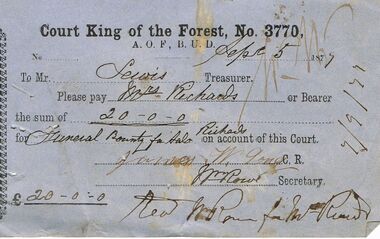 Court King of the Forest, No. 3770,
A. O. F., B. U. D.
No Sept 5 1877
To Mr. Lewis Treasurer.
Please pay Mrs Richards or Bearer
the sum of 20-0-0
for Funeral Bounty for Richards on account of this Court.
James C. R.
Wm Rowe Secretary.
£ 20-0-0
Wm for Mrs